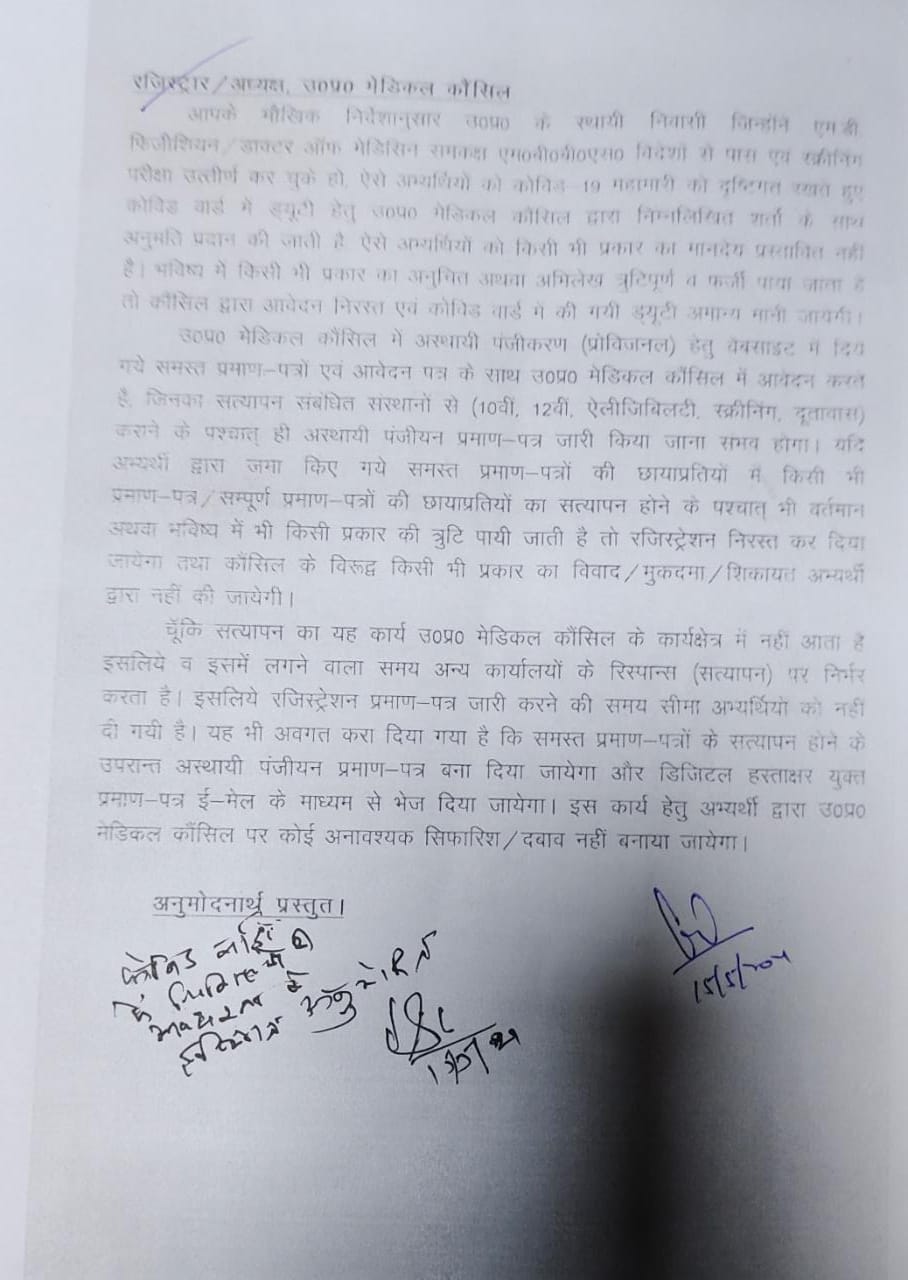 रजिस्ट्रार/अध्यक्ष, उ0प्र0 मेडिकल कौंसिल
आपके मौखिक निर्देशानुसार उ0प्र0 के स्थायी निवासी जिन्होंने एम.डी.
फिजीशियन/डाक्टर ऑफ मेडिसिन समकक्ष एम0बी0बी0एस0 विदेशों से पास एवं स्क्रीनिंग
परीक्षा उत्तीर्ण कर चुके हो, ऐसे अभ्यर्थियों को कोविड-19 महामारी को दृष्टिगत रखते हुए
कोविड वार्ड में ड्यूटी हेतु उ0प्र0 मेडिकल कौंसिल द्वारा निम्नलिखित शर्तो के साथ
अनुमति प्रदान की जाती है, ऐसे अभ्यर्थियों को किसी भी प्रकार का मानदेय प्रस्तावित नहीं
है। भविष्य में किसी भी प्रकार का अनुचित अथवा अभिलेख त्रुटिपूर्ण व फर्जी पाया जाता है
तो कौंसिल द्वारा आवेदन निरस्त एवं कोविड वार्ड में की गयी ड्यूटी अमान्य मानी जायेगी।
उ0प्र0 मेडिकल कौंसिल में अस्थायी पंजीकरण (प्रोविजनल) हेतु वेबसाइट में दिये
गये समस्त प्रमाण-पत्रों एवं आवेदन पत्र के साथ उ0प्र0 मेडिकल कौंसिल में आवेदन करते
है, जिनका सत्यापन संबंधित संस्थानों से (10वीं, 12वीं, ऐलीजिबिलटी, स्क्रीनिंग, दूतावास)
कराने के पश्चात् ही अस्थायी पंजीयन प्रमाण-पत्र जारी किया जाना संभव होगा। यदि
अभ्यर्थी द्वारा जमा किए गये समस्त प्रमाण-पत्रों की छायाप्रतियों में किसी भी
प्रमाण-पत्र/सम्पूर्ण प्रमाण-पत्रों की छायाप्रतियों का सत्यापन होने के पश्चात् भी वर्तमान
अथवा भविष्य में भी किसी प्रकार की त्रुटि पायी जाती है तो रजिस्ट्रेशन निरस्त कर दिया
जायेगा तथा कौंसिल के विरूद्व किसी भी प्रकार का विवाद/मुकदमा/शिकायत अभ्यर्थी
द्वारा नहीं की जायेगी।
चूँकि सत्यापन का यह कार्य उ0प्र0 मेडिकल कौंसिल के कार्यक्षेत्र में नहीं आता है
इसलिये व इसमें लगने वाला समय अन्य कार्यालयों के रिस्पान्स (सत्यापन) पर निर्भर
करता है। इसलिये रजिस्ट्रेशन प्रमाण-पत्र जारी करने की समय सीमा अभ्यर्थियों को नहीं
दी गयी है। यह भी अवगत करा दिया गया है कि समस्त प्रमाण-पत्रों के सत्यापन होने के
उपरान्त अस्थायी पंजीयन प्रमाण-पत्र बना दिया जायेगा और डिजिटल हस्ताक्षर युक्त
प्रमाण-पत्र ई-मेल के माध्यम से भेज दिया जायेगा। इस कार्य हेतु अभ्यर्थी द्वारा उ0प्र0
मेडिकल कौंसिल पर कोई अनावश्यक सिफारिश/दबाव नहीं बनाया जायेगा।
अनुमोदनार्थ प्रस्तुत।
कोविड
आवश्यकता के
दृष्टिगत अनुमोदित